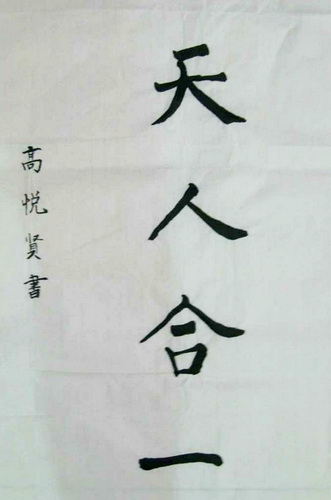 天人合一
高悦贤書